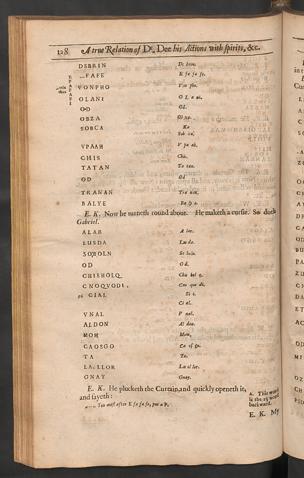 128 A true Relation of Dr. Dee his Actions with spirits, &c.
DSBRIN
FAFE E fa fe.
VONPHO
OLANI
OD Od.
OBZA
SOBCA
VPAAH V pa ah.
CHIS Chis.
TATAN Ta tan.
OD Od
TRANAN Tra nan.
BALYE
E. K. Now he turneth round about. He maketh a cursie. So doth
Gabriel.
ALAR A lar.
LUSDA Lus da.
SOBOLN So boln.
OD Od.
CHISHOLQ Chis hol q.
CNOQVODI, Cno quo di.
CIAL Ci al.
VNAL V nal.
ALDON Al don.
MOM Mom,
CAOSGO Ca os go.
TA Ta.
LAS,LLOR Las ol lor.
GNAY Gnay.
E. K. He plucketh the Curtain, and quickly openeth it,
and sayeth:
You must after E fa fa fe, put a P.
a. This was
is the 15 word
backward.
E. K. My